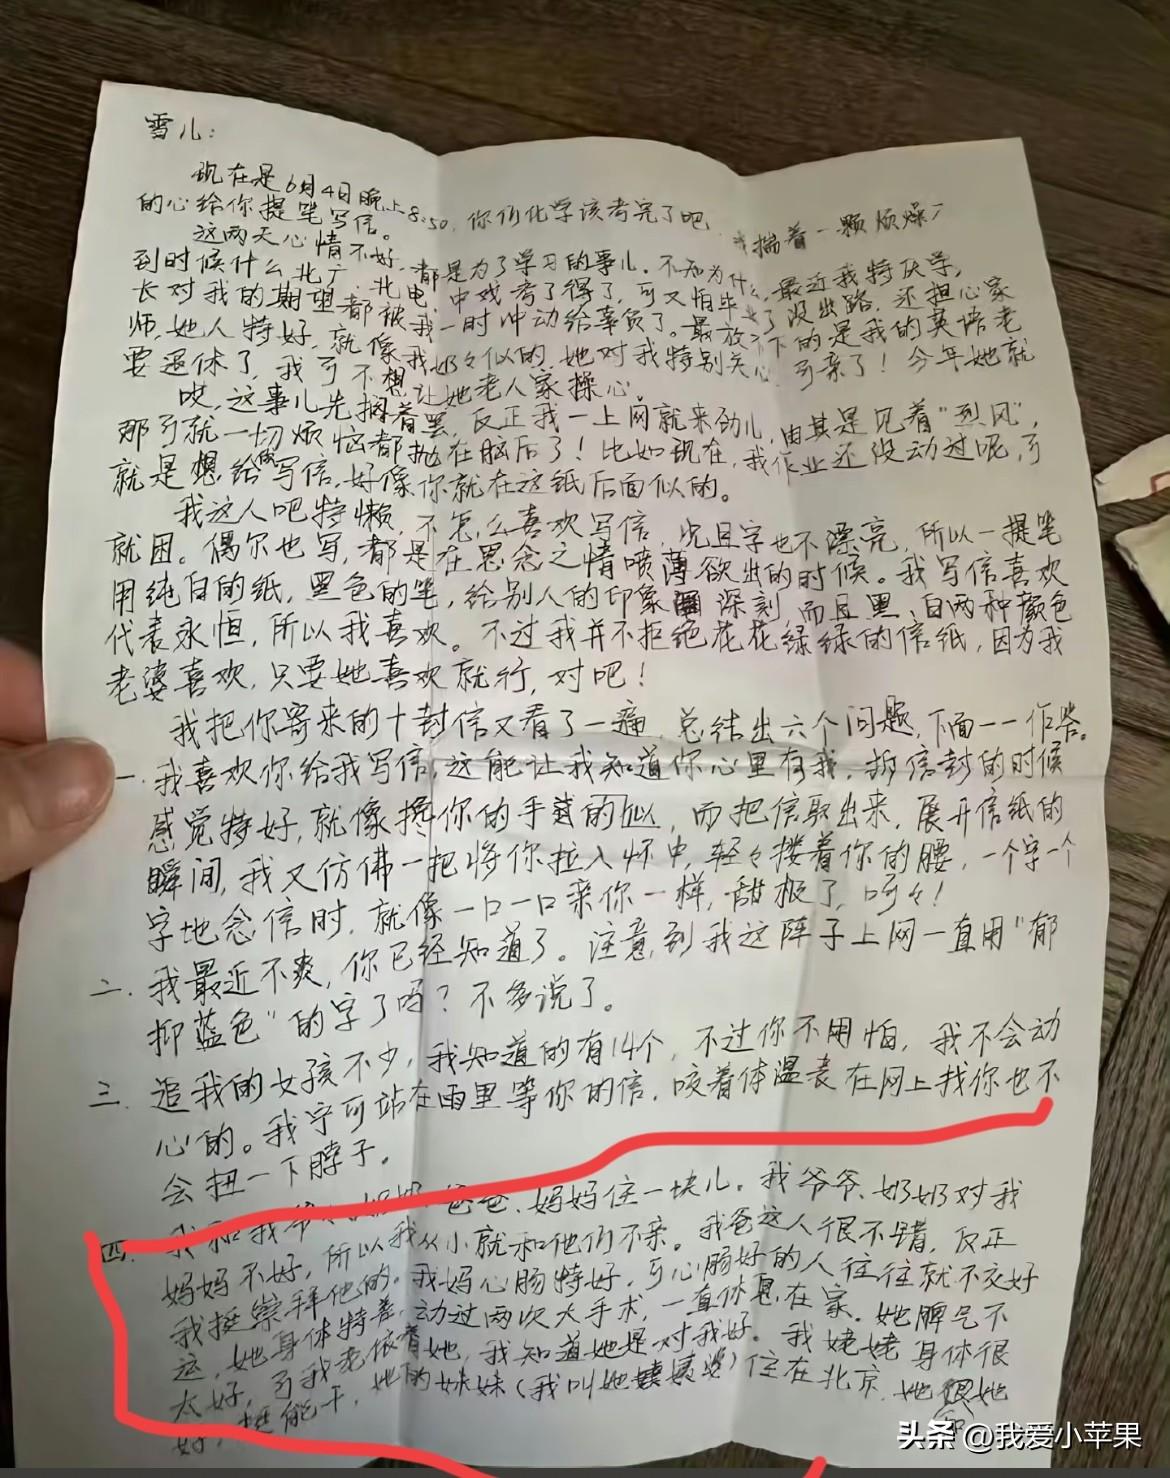 雪儿：
现在是6月4日晚上8:50，你们化学该考完了吧，我揣着一颗烦燥
的心给你提笔写信。
这两天心情不好，都是为了学习的事儿。不知为什么，最近我特厌学，
到时候什么北广、北电、中戏考了得了，可又怕毕业了没出路，还担心家
长对我的期望都被我一时冲动给辜负了。最放不下的是我的英语老
师，她人特好，就像我奶々似的，她对我特别关心，可亲了！今年她就
要退休了，我可不想让她老人家操心。
哎，这事儿先搁着罢，反正我一上网就来劲儿，由其是见着“烈风”，
那可就一切烦恼都抛在脑后了！比如现在，我作业还没动过呢，可
就是想给你写信，好像你就在这纸后面似的。
我这人吧特懒，不怎么喜欢写信，况且字也不漂亮，所以一提笔
就困。偶尔也写，都是在思念之情喷薄欲出的时候。我写信喜欢
用纯白的纸，黑色的笔，给别人的印象深刻，而且黑、白两种颜色
代表永恒，所以我喜欢。不过我并不拒绝花花绿绿的信纸，因为我
老婆喜欢，只要她喜欢就行，对吧！
我把你寄来的十封信又看了一遍，总结出六个问题，下面一一作答。
一．我喜欢你给我写信，这能让我知道你心里有我，拆信封的时候
感觉特好，就像搀你的手似的，而把信取出来，展开信纸的
瞬间，我又仿佛一把将你拉入怀中，轻々搂着你的腰，一个字一个
字地念信时，就像一口一口亲你一样，甜极了，呵々！
二．我最近不爽，你已经知道了。注意到我这阵子上网一直用“郁
抑蓝色”的字了吗？不多说了。
三．追我的女孩不少，我知道的有14个，不过你不用怕，我不会动
心的。我宁可站在雨里等你的信，咬着体温表在网上找你也不
会扭一下脖子。
四．我和我爷爷、奶奶、爸爸、妈妈住一块儿。我爷爷、奶奶对我
妈妈不好，所以我从小就和他们不亲。我爸这人很不错，反正
我挺崇拜他的。我妈心肠特好，可心肠好的人往往就不交好
运，她身体特差，动过两次大手术，一直休息在家。她脾气不
太好，可我老依着她，我知道她是对我好。我姥姥身体很
好，挺能干，她的妹妹（我叫她姨婆）住在北京，她和她
头条 @我爱小苹果